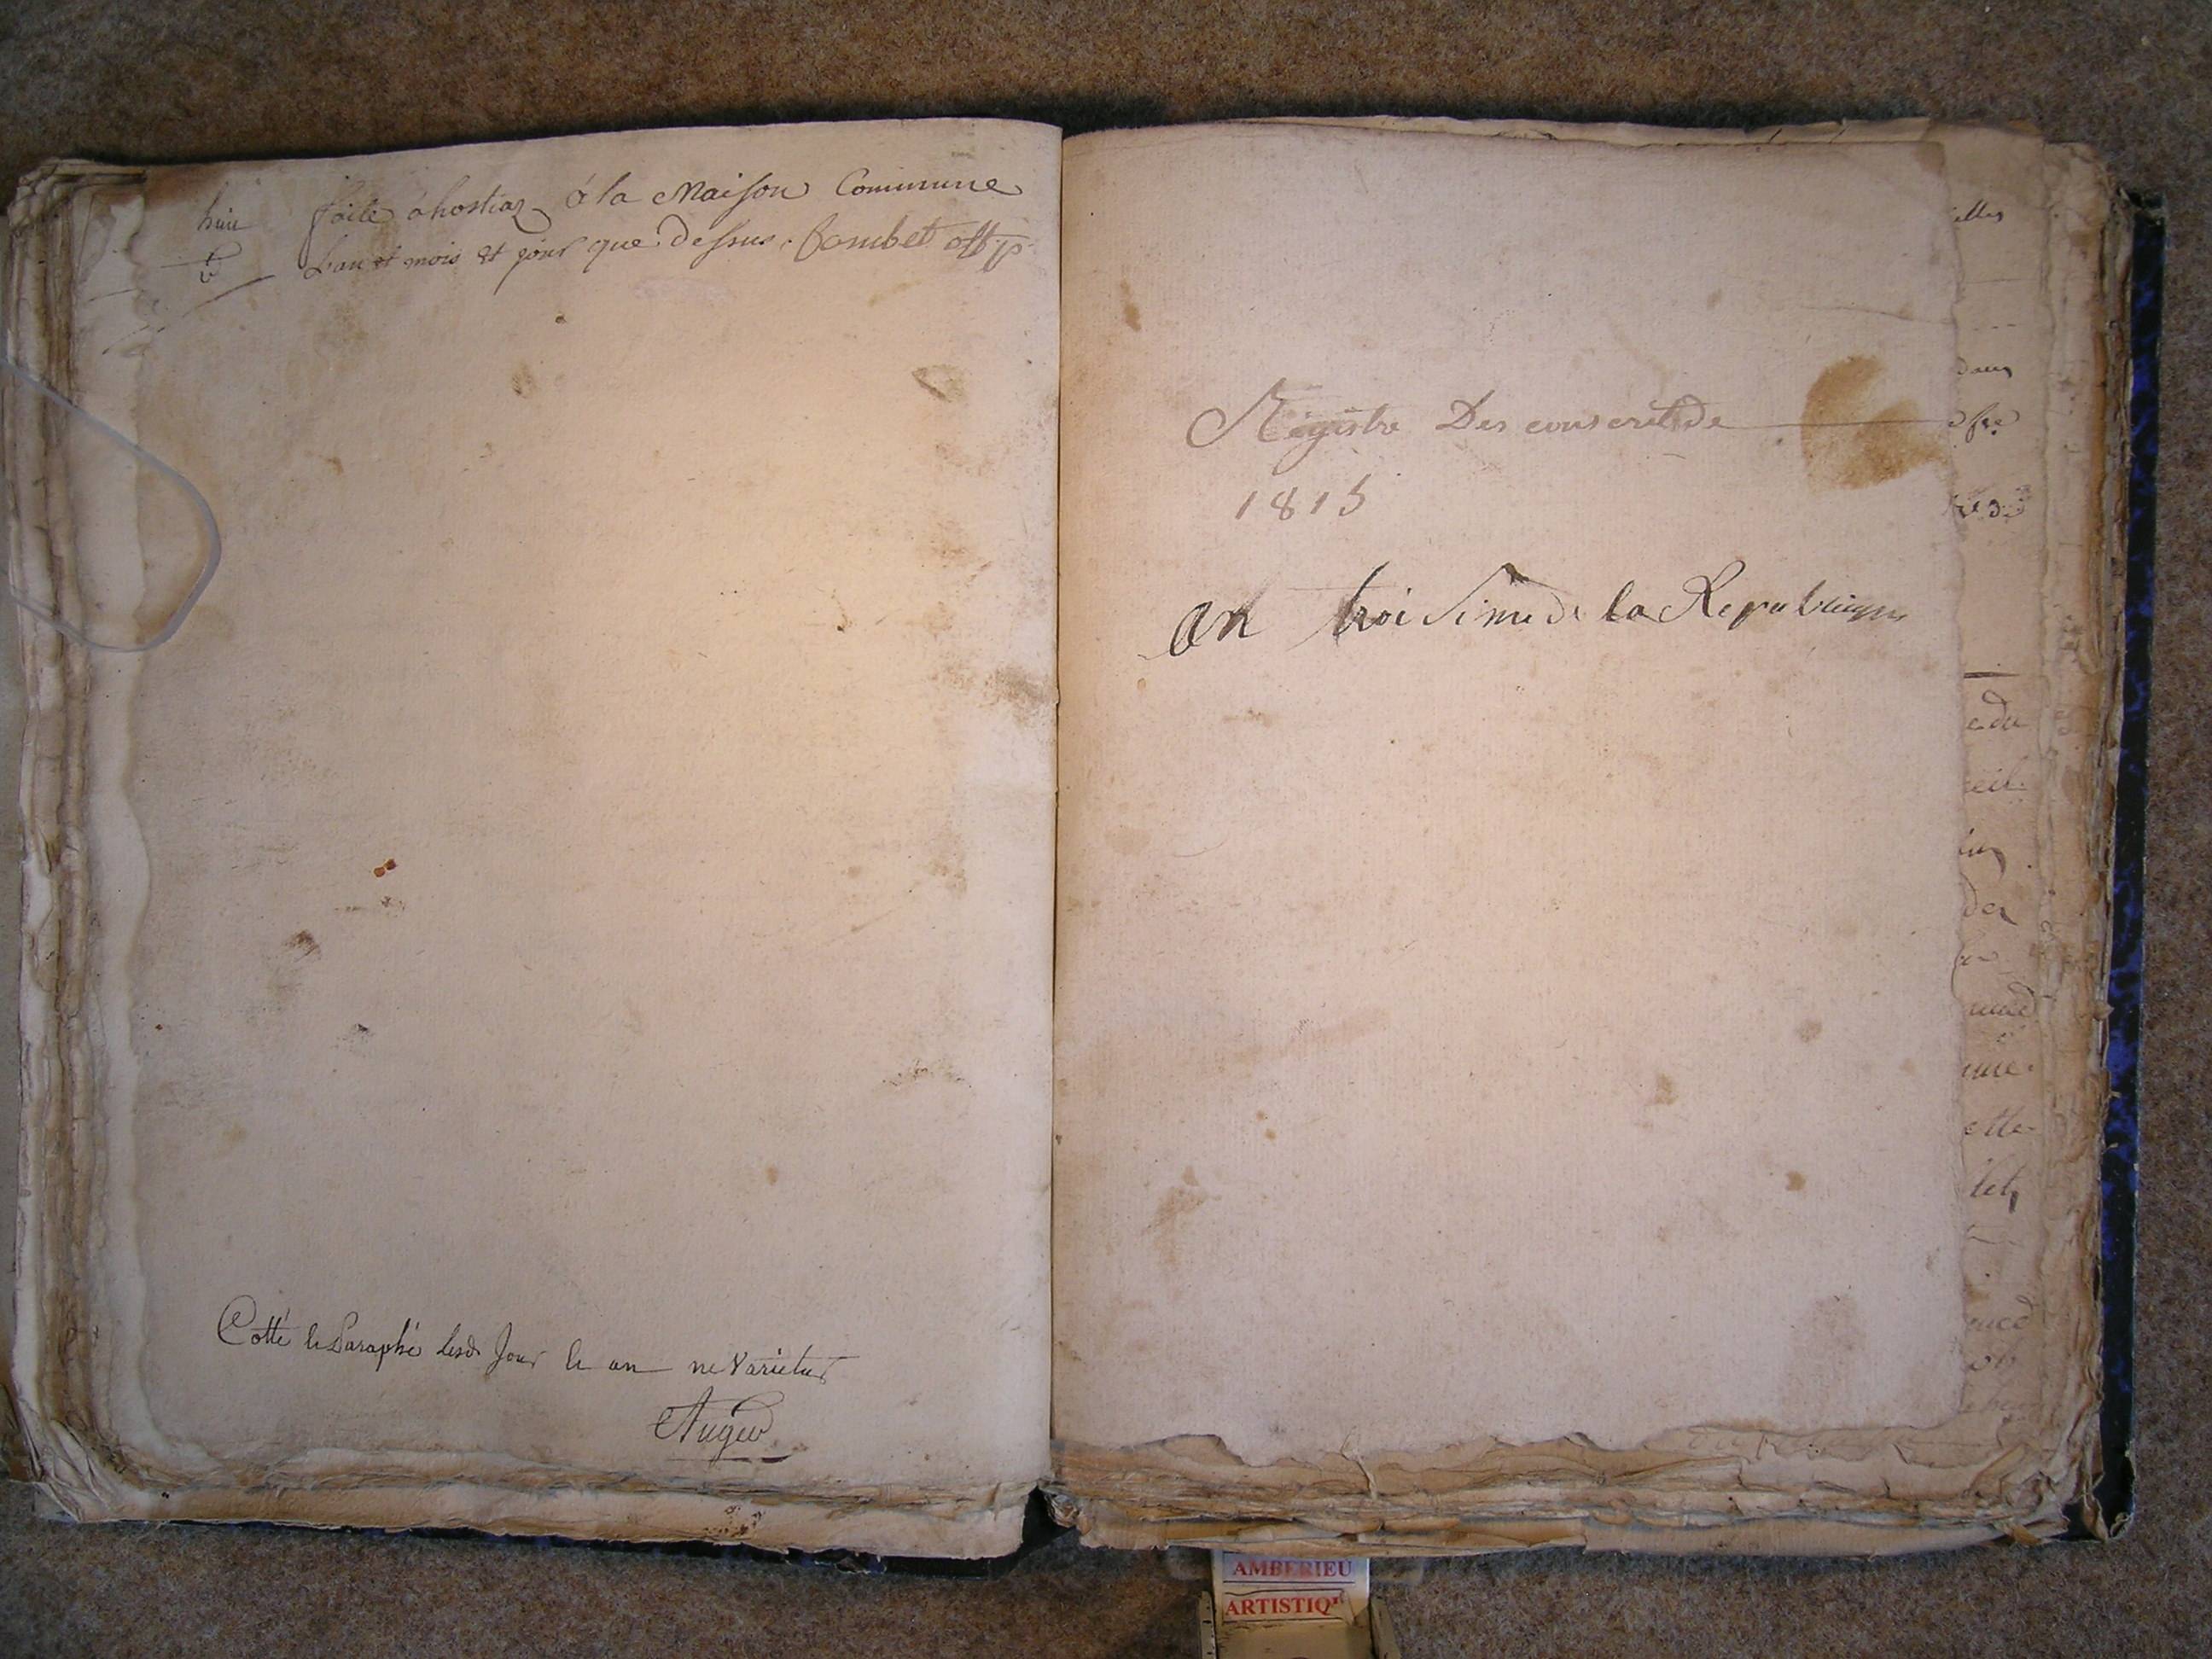 huit faite à hostiaz à la Maison Commune
L'an et mois et jour que dessus. Jombet off p
Cotté le Paraphé lesd Jour le an ne Varietur
Auger
Régistre Des conscrits de
1815
an troisime de la Republique
elles
dans
e du
der
ette
AMBERIEU
ARTISTIQ